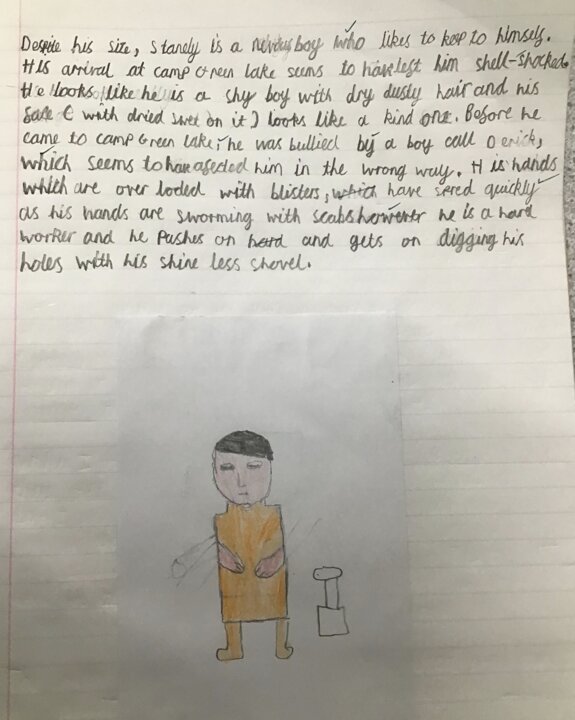 Despite his size, Stanely is a nervous boy who likes to keep to himself.
His arrival at camp Green lake seems to have left him shell-shocked.
He looks like he is a shy boy with dry dusty hair and his
face ( with dried swet on it ) looks like a kind one. Before he
came to camp Green lake, he was bullied by a boy call Derick,
which seems to have afected him in the wrong way. His hands
which are over loded with blisters, which have sered quickly
as his hands are sworming with scabs however he is a hard
worker and he pushes on hard and gets on digging his
holes with his shine less shovel.